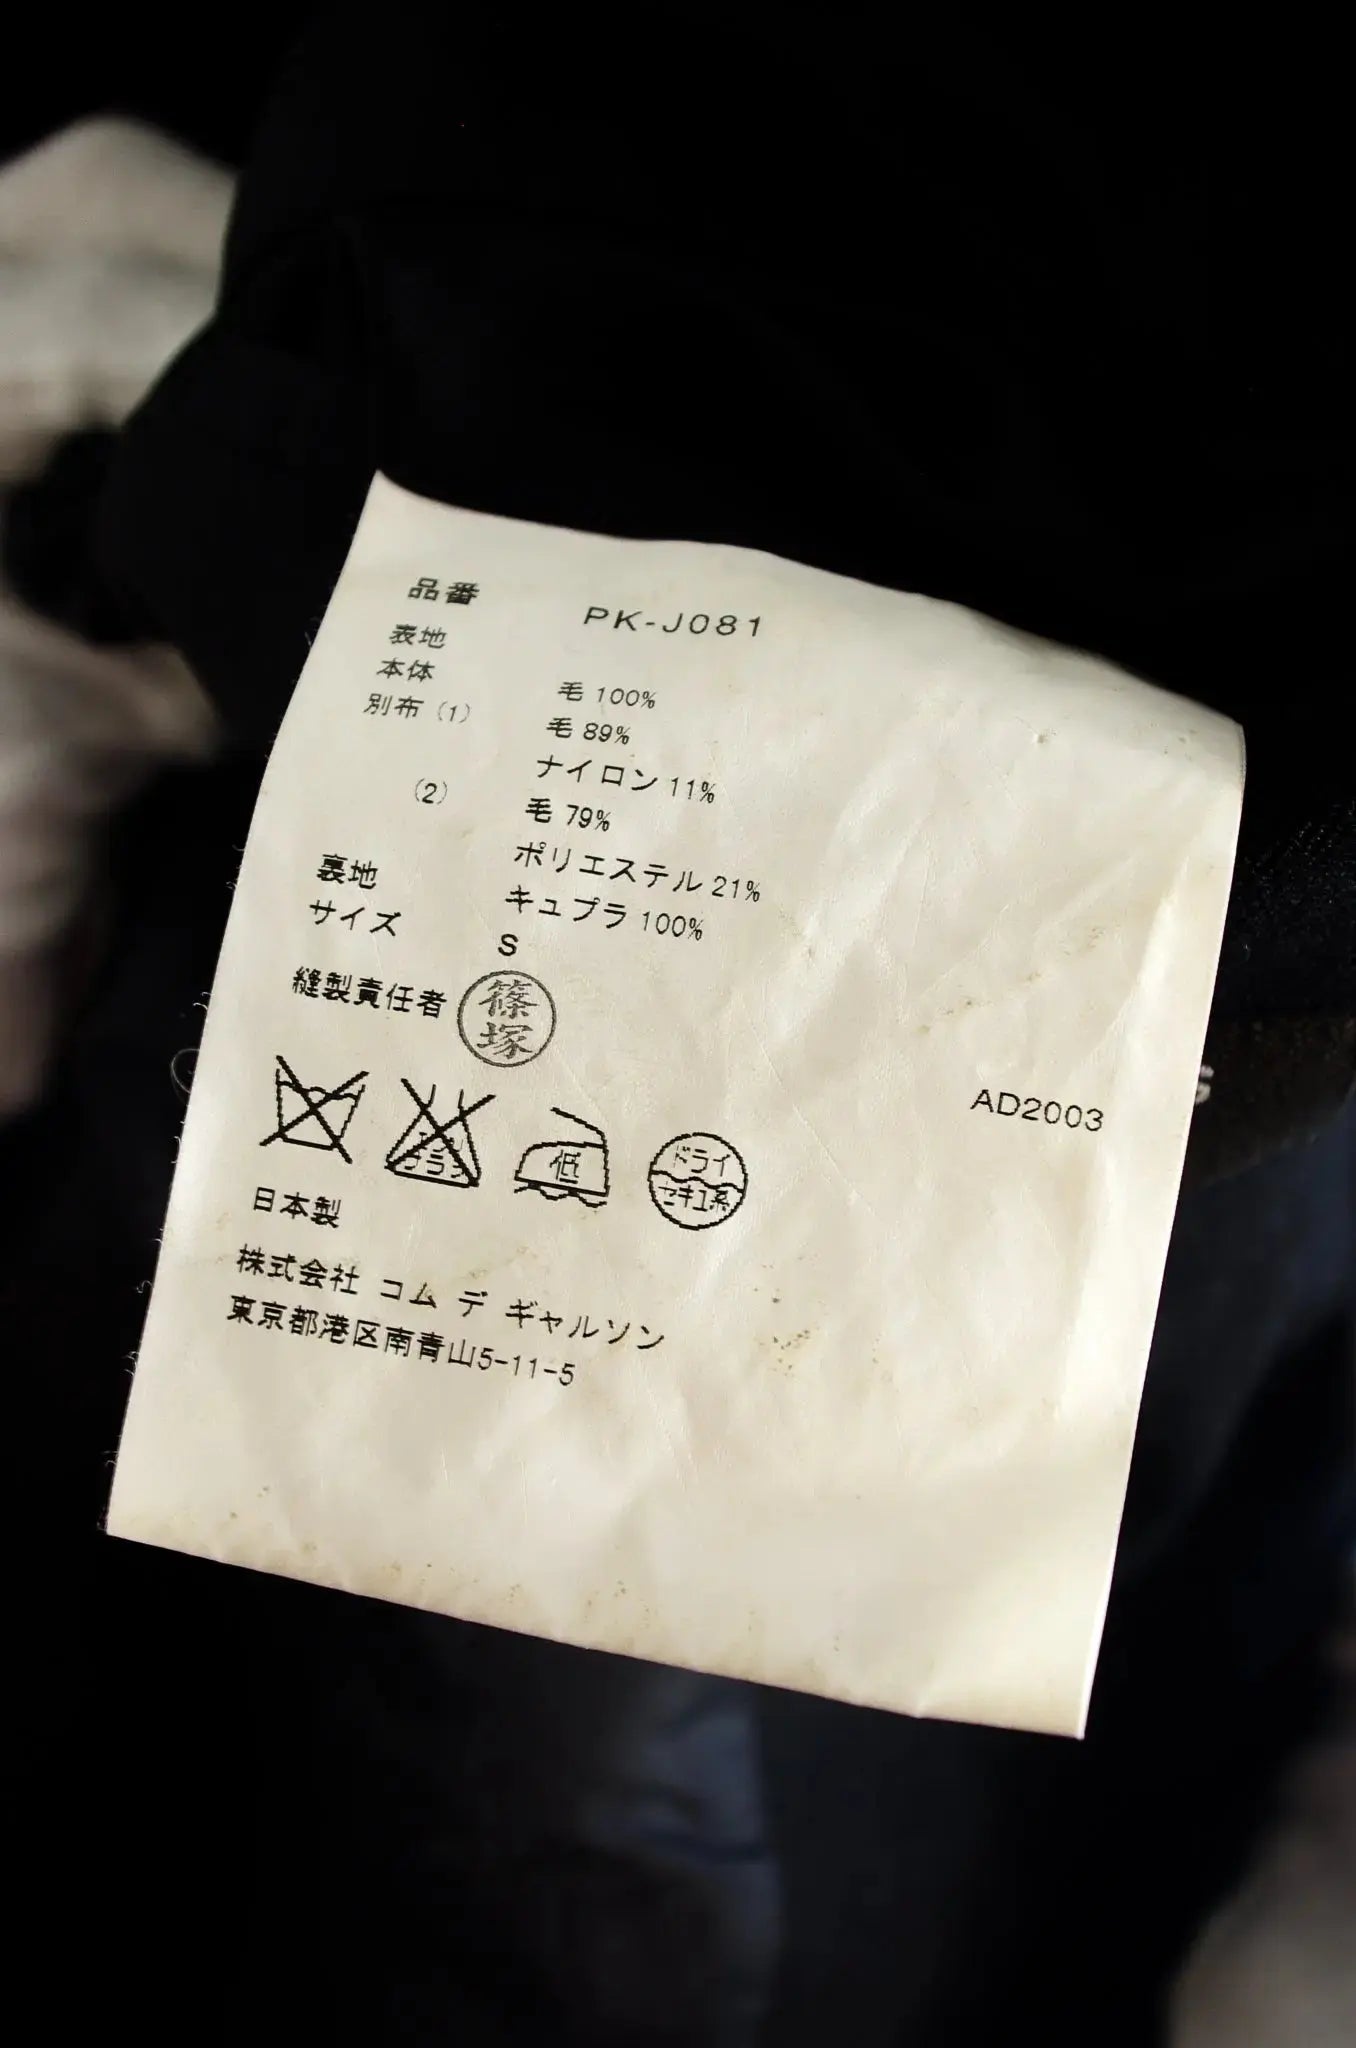 品番 PK-J081
表地
本体 毛 100%
別布(1) 毛 89%
ナイロン 11%
(2) 毛 79%
ポリエステル 21%
裏地 キュプラ 100%
サイズ S
縫製責任者 篠塚
低
ドライ
セキユ系
AD2003
日本製
株式会社 コム デ ギャルソン
東京都港区南青山5-11-5